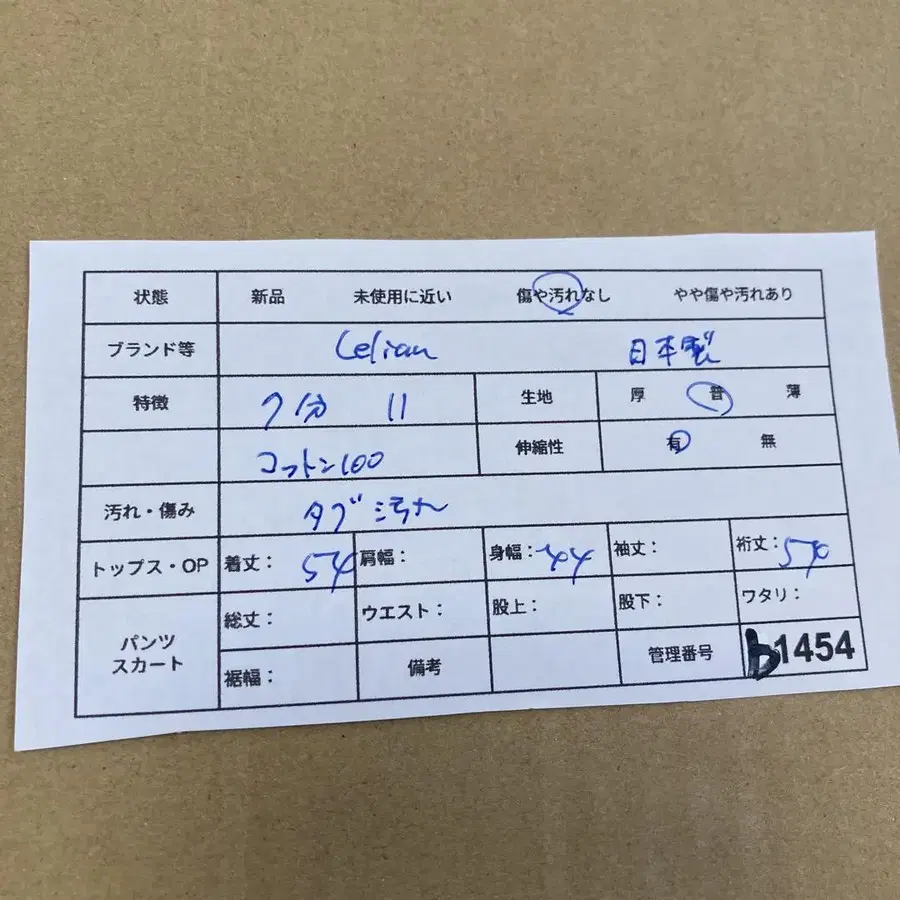 状態 新品 未使用に近い 傷や汚れなし やや傷や汚れあり
ブランド等 Lelian 日本製
特徴 7分 11 生地 厚 普 薄
コットン100 伸縮性 有 無
汚れ・傷み タブ汚れ
トップス・OP 着丈: 54 肩幅: 身幅: 44 袖丈: 裄丈: 54
パンツ スカート 総丈: ウエスト: 股上: 股下: ワタリ:
裾幅: 備考 管理番号 b1454